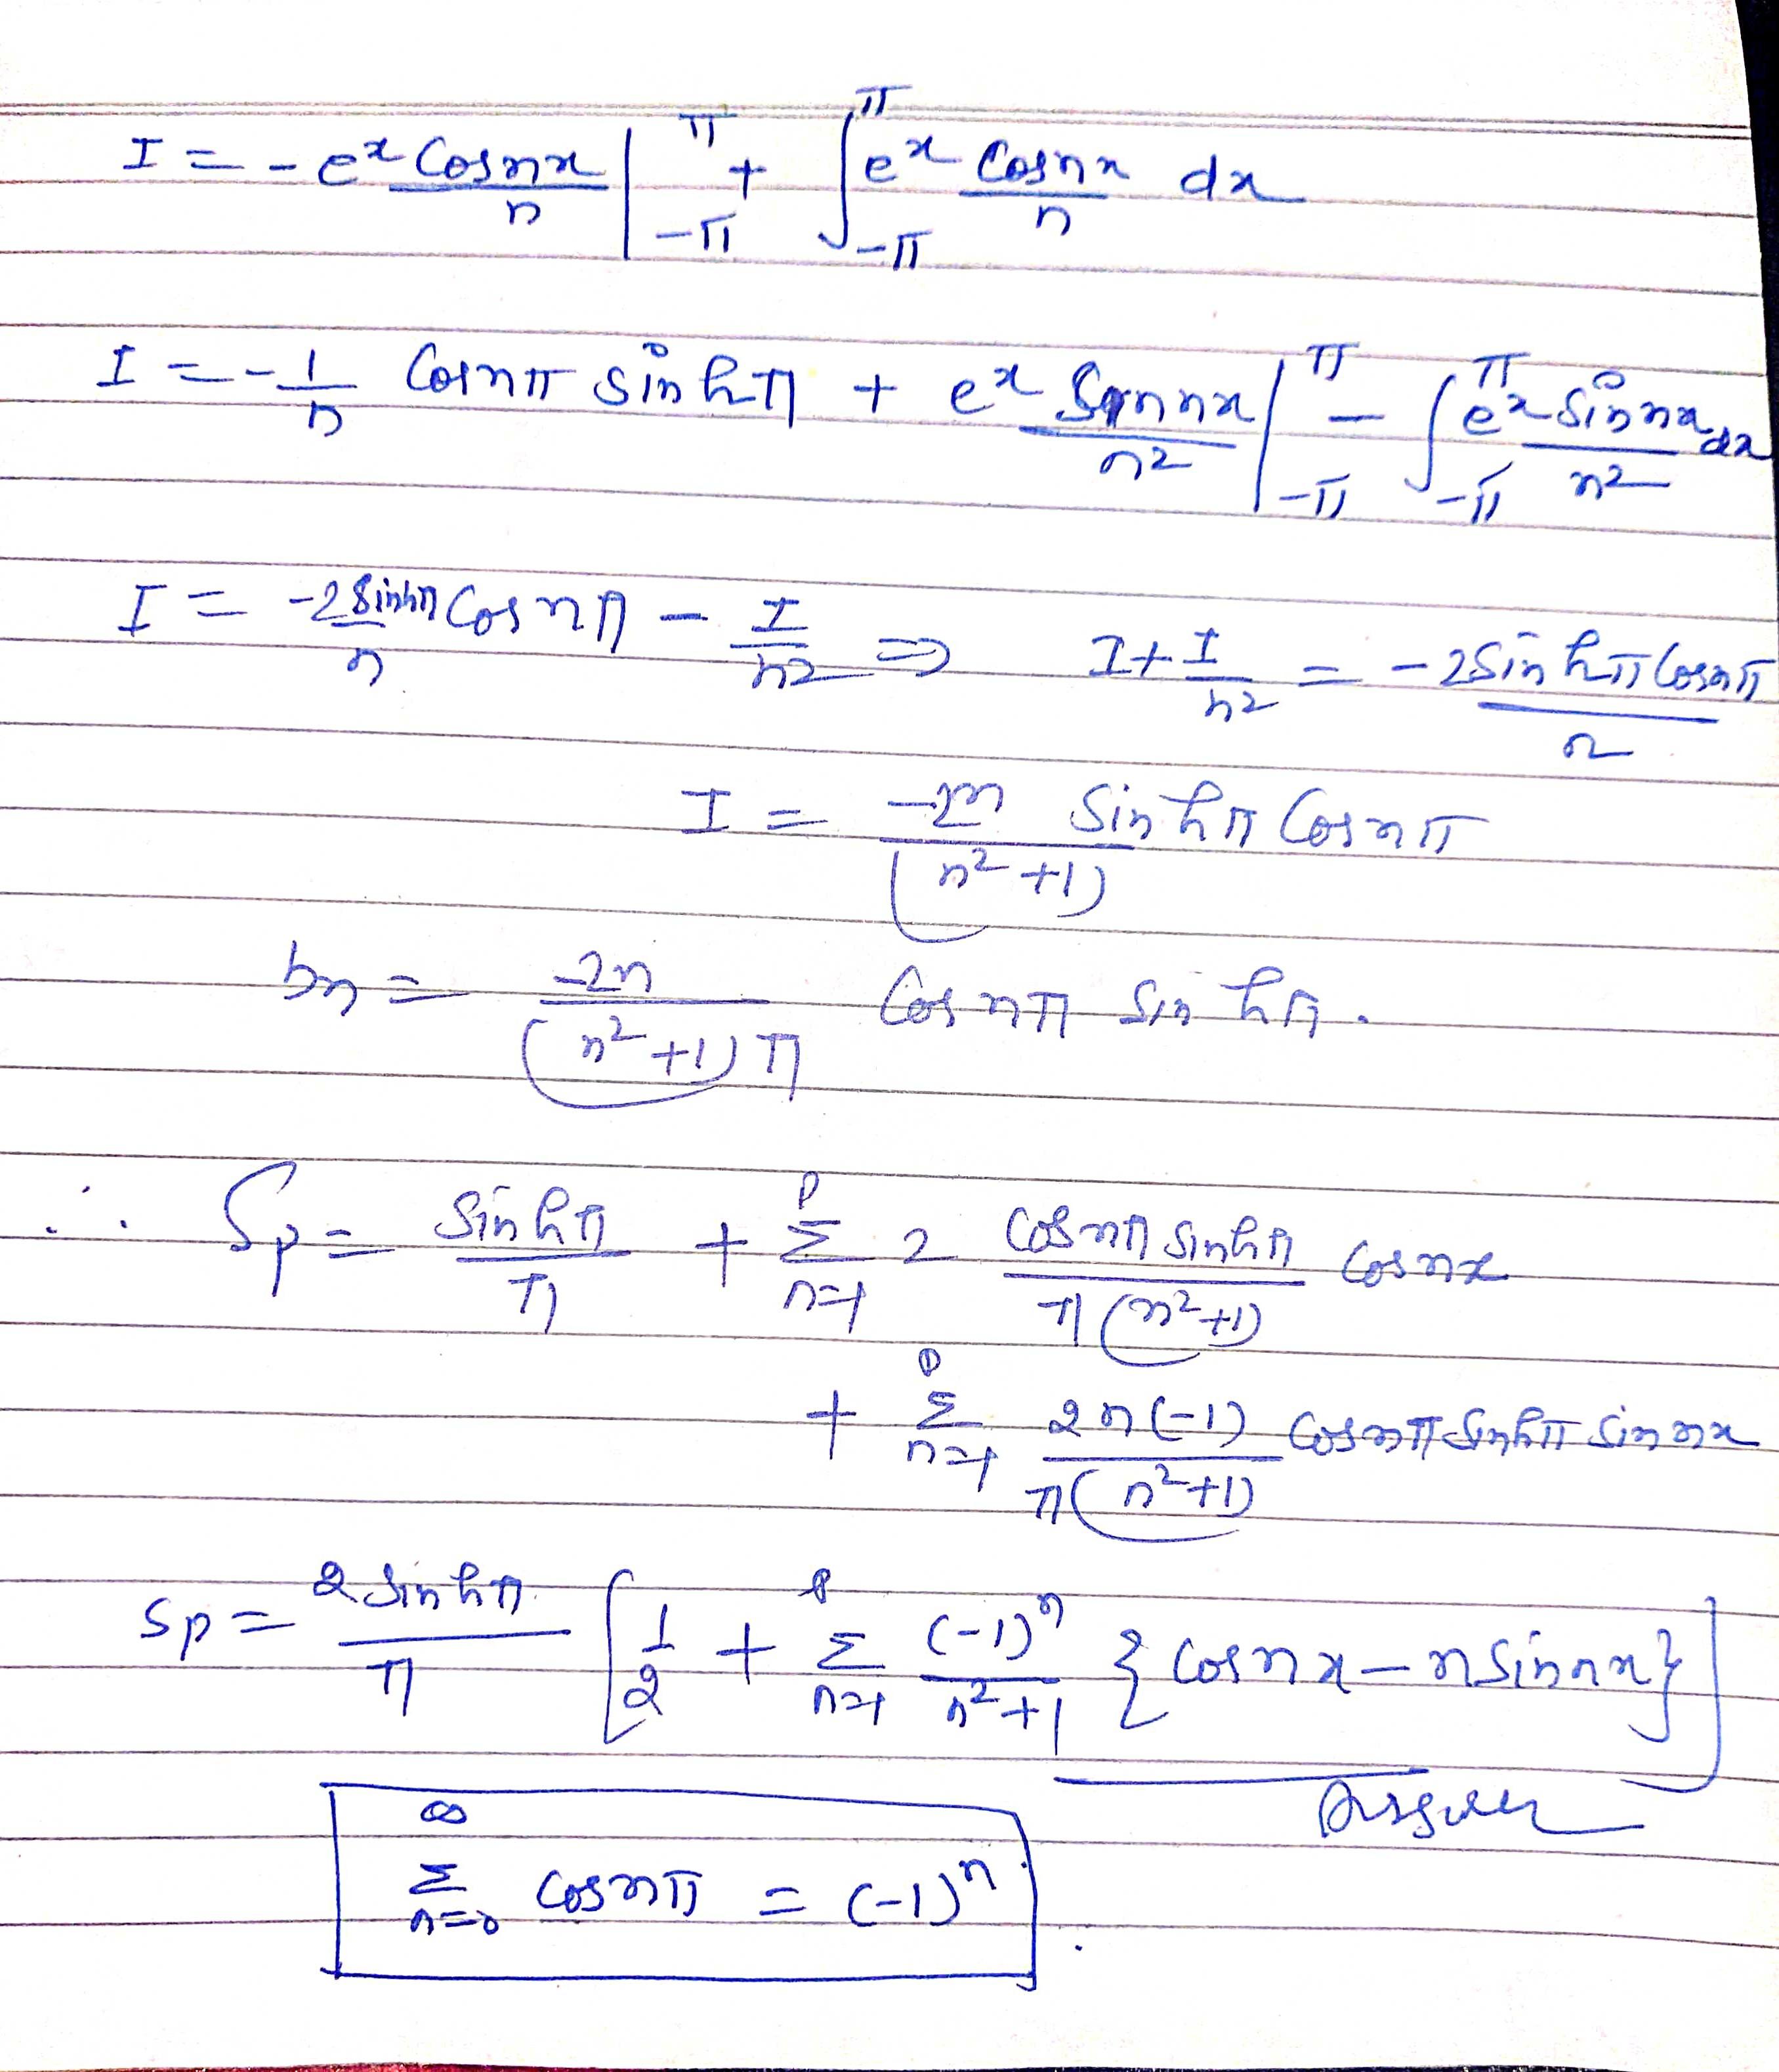 I = - e^x Cosnx/n |_{-π}^{π} + ∫_{-π}^{π} e^x Cosnx/n dx
I = - 1/n Cosnπ Sinhπ + e^x Sinnx/n² |_{-π}^{π} - ∫_{-π}^{π} e^x Sinnx/n² dx
I = -2Sinhπ/n Cosnπ - I/n² ⇒ I + I/n² = -2Sinhπ Cosnπ/n
I = -2n/(n²+1) Sinhπ Cosnπ
bn = -2n/((n²+1)π) Cosnπ Sinhπ.
∴ Sp = Sinhπ/π + Σ_{n=1}^{p} 2 Cosnπ Sinhπ/(π(n²+1)) Cosnx
+ Σ_{n=1}^{p} 2n(-1)/(π(n²+1)) Cosnπ Sinhπ Sinnx
Sp = 2Sinhπ/π [1/2 + Σ_{n=1}^{p} (-1)^n/(n²+1) {Cosnx - nSinnx}]
Answer
Σ_{n=0}^{∞} Cosnπ = (-1)^n